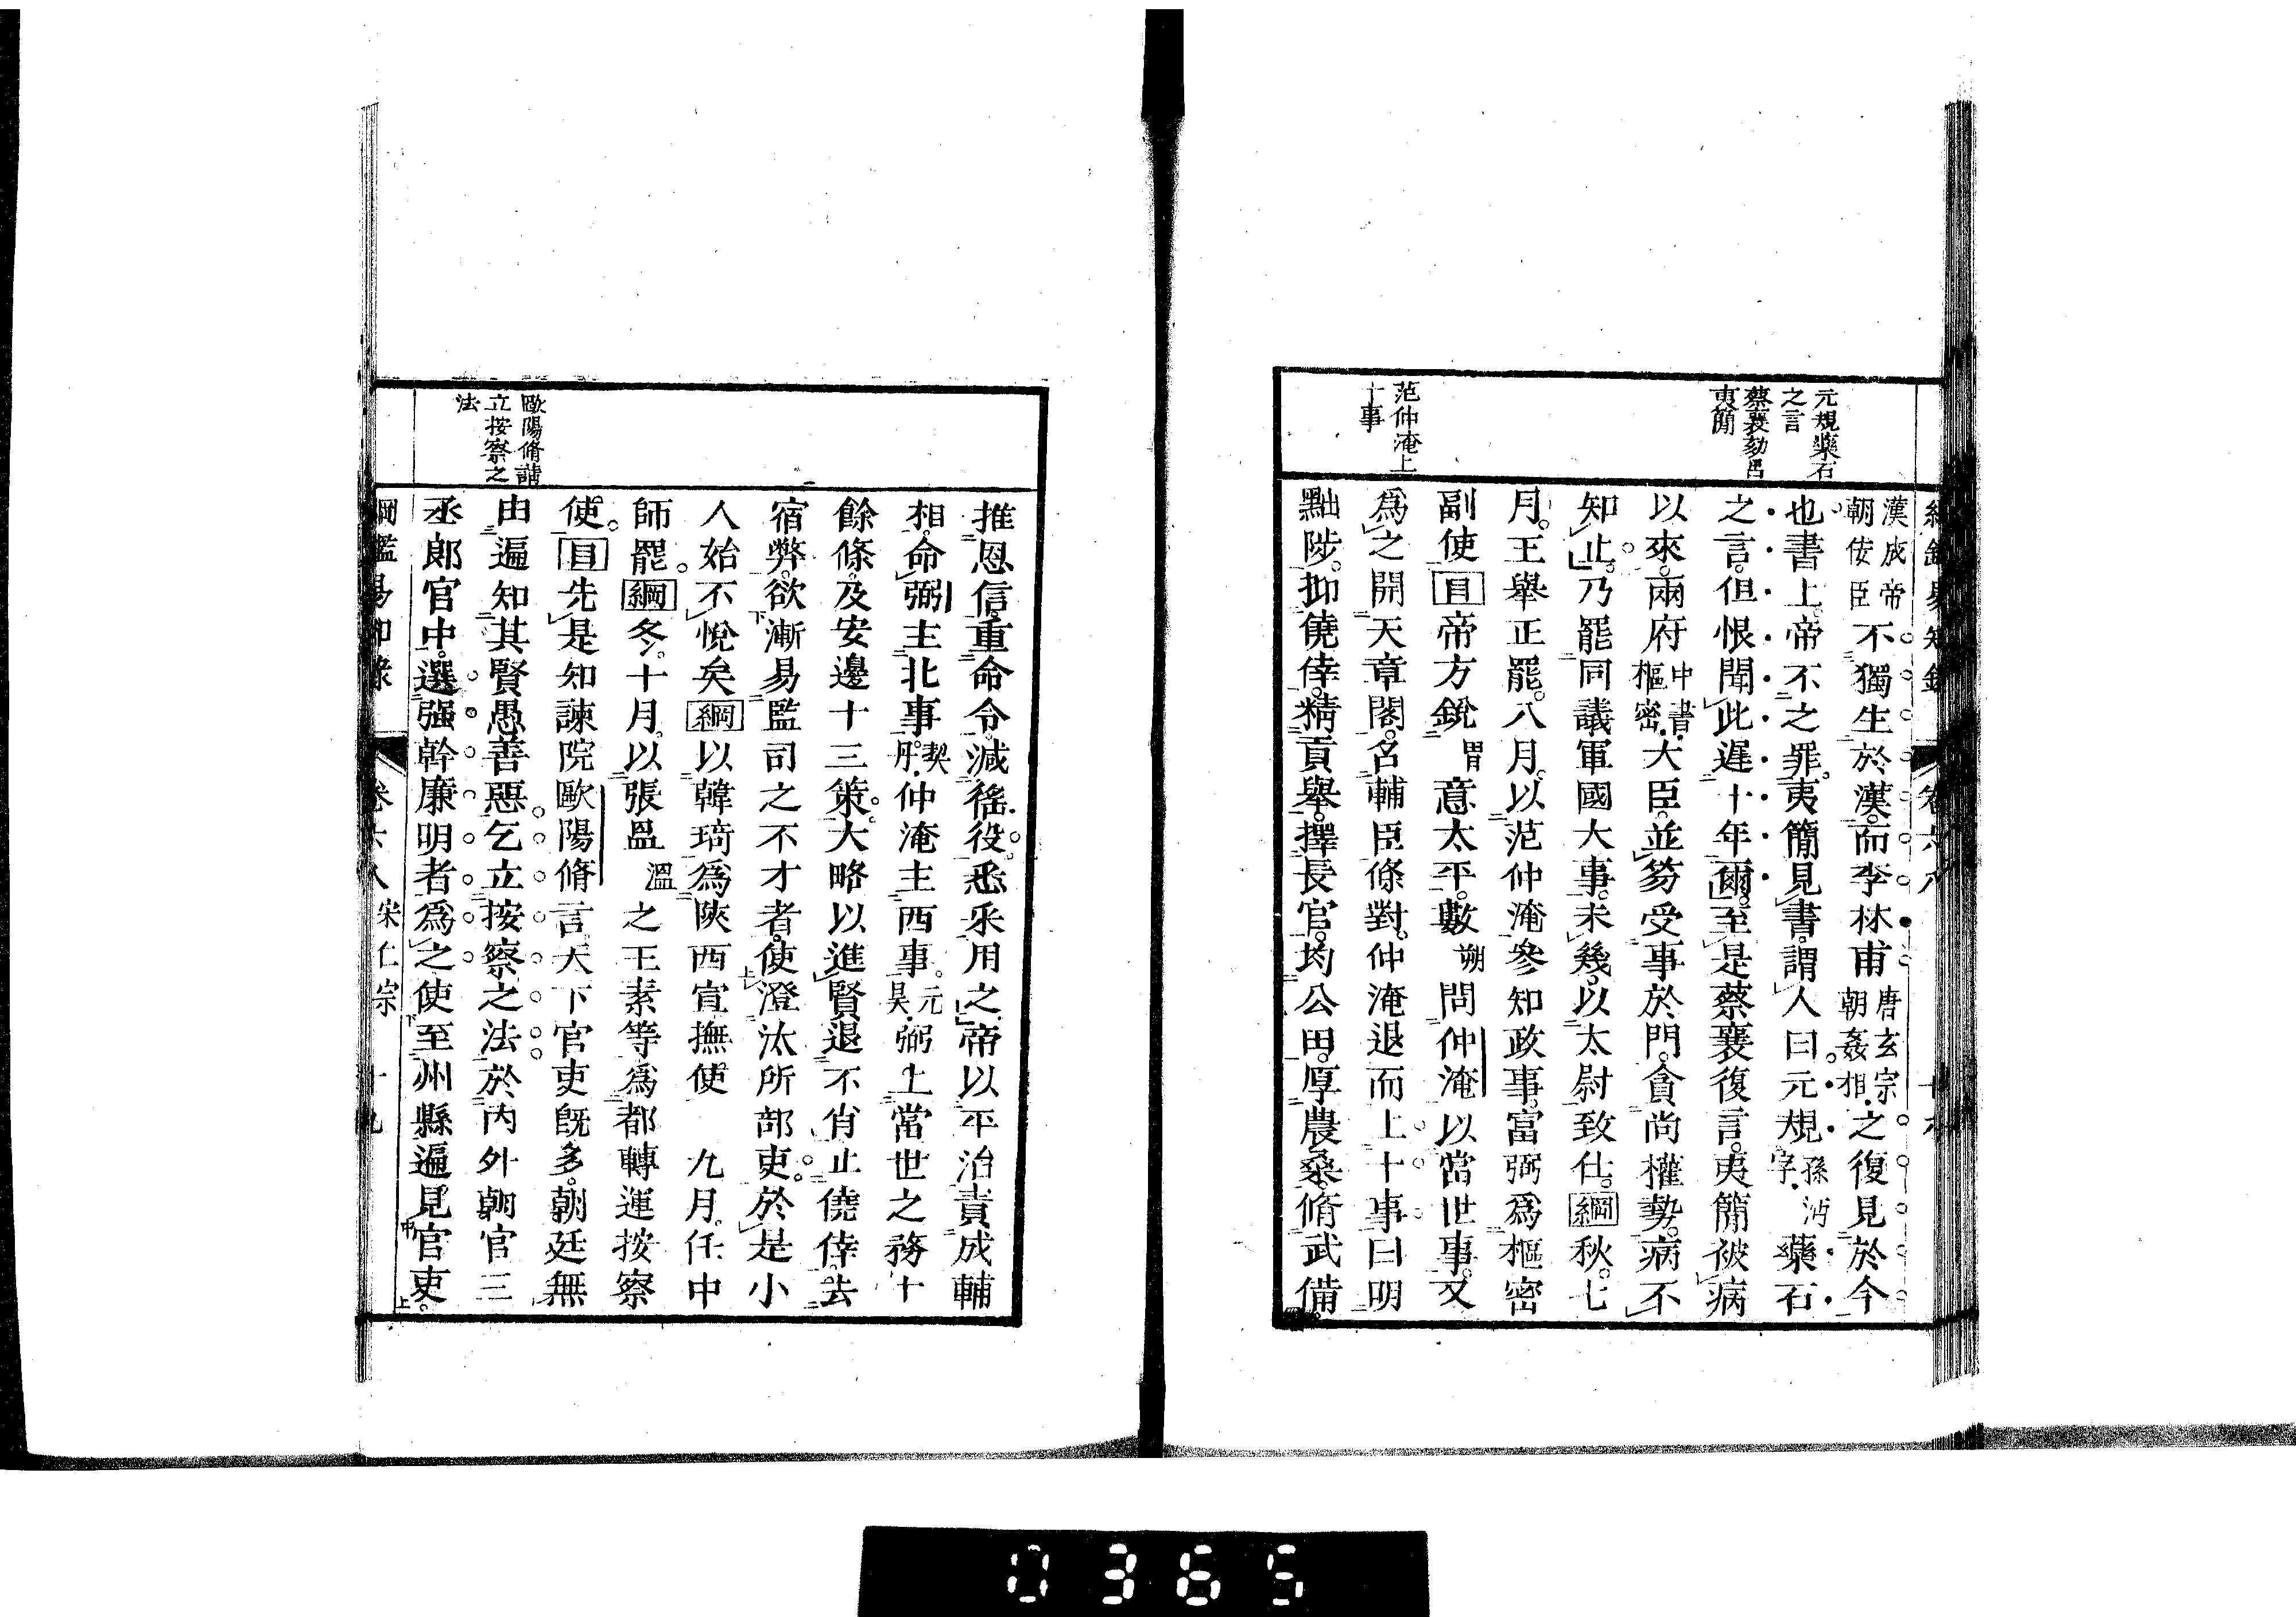 元規藥石
之言
蔡襄劾呂
夷簡
范仲淹上
十事
漢成帝
朝佞臣
不獨生於漢而李林甫
唐玄宗
朝姦相
之復見於今
也書上帝不之罪夷簡見書謂人曰元規
孫沔
字
藥石
之言但恨聞此遲十年爾至是蔡襄復言夷簡被病
以來兩府
中書
樞密
大臣並笏受事於門貪尚權勢病不
知止乃罷同議軍國大事未幾以太尉致仕綱秋七
月王舉正罷八月以范仲淹參知政事富弼爲樞密
副使目帝方銳
意太平數
朔
問仲淹以當世事又
爲之開天章閣名輔臣條對仲淹退而上十事曰明
黜陟抑僥倖精貢舉擇長官均公田厚農桑脩武備
歐陽脩請
立按察之
法
推恩信重命令減徭役悉釆用之帝以平治責成輔
相命弼主北事
契
丹
仲淹主西事
元
昊
弼上當世之務十
餘條及安邊十三策大略以進賢退不肖止僥倖去
宿弊欲漸易監司之不才者使澄汰所部吏於是小
人始不悅矣綱以韓琦爲陝西宣撫使 九月任中
師罷綱冬十月以張昷
溫
之王素等爲都轉運按察
使目先是知諫院歐陽脩言天下官吏旣多朝廷無
由遍知其賢愚善惡乞立按察之法於內外朝官三
丞郎官中選强幹廉明者爲之使至州縣遍見官吏
綱鑑易知錄 卷六八 宋仁宗 十九